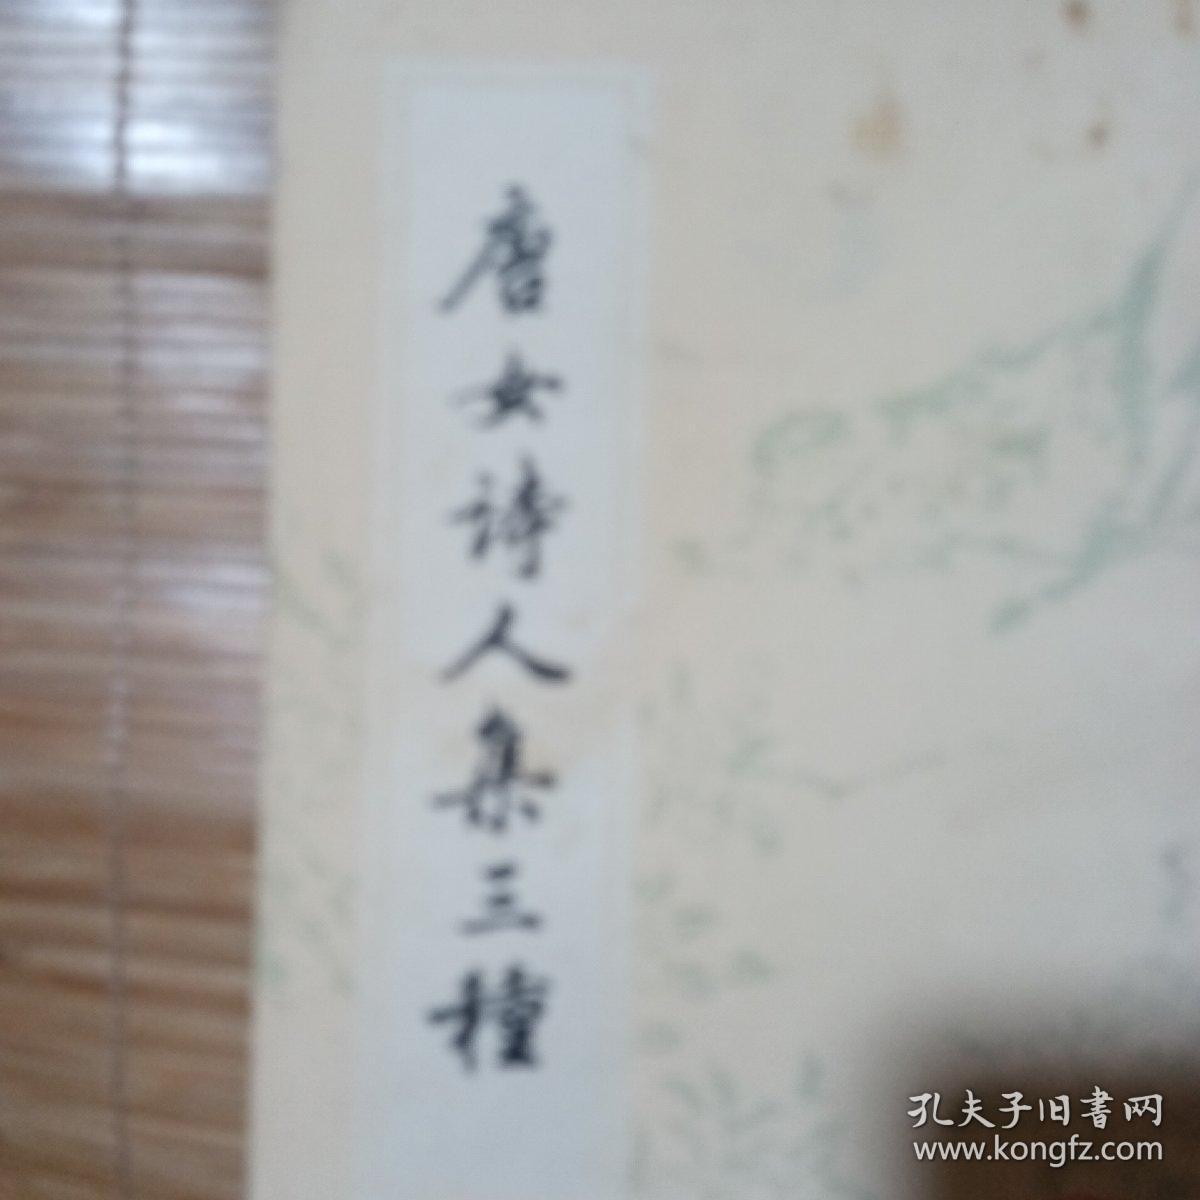 唐女诗人集三種
孔夫子旧書网
www.kongfz.com